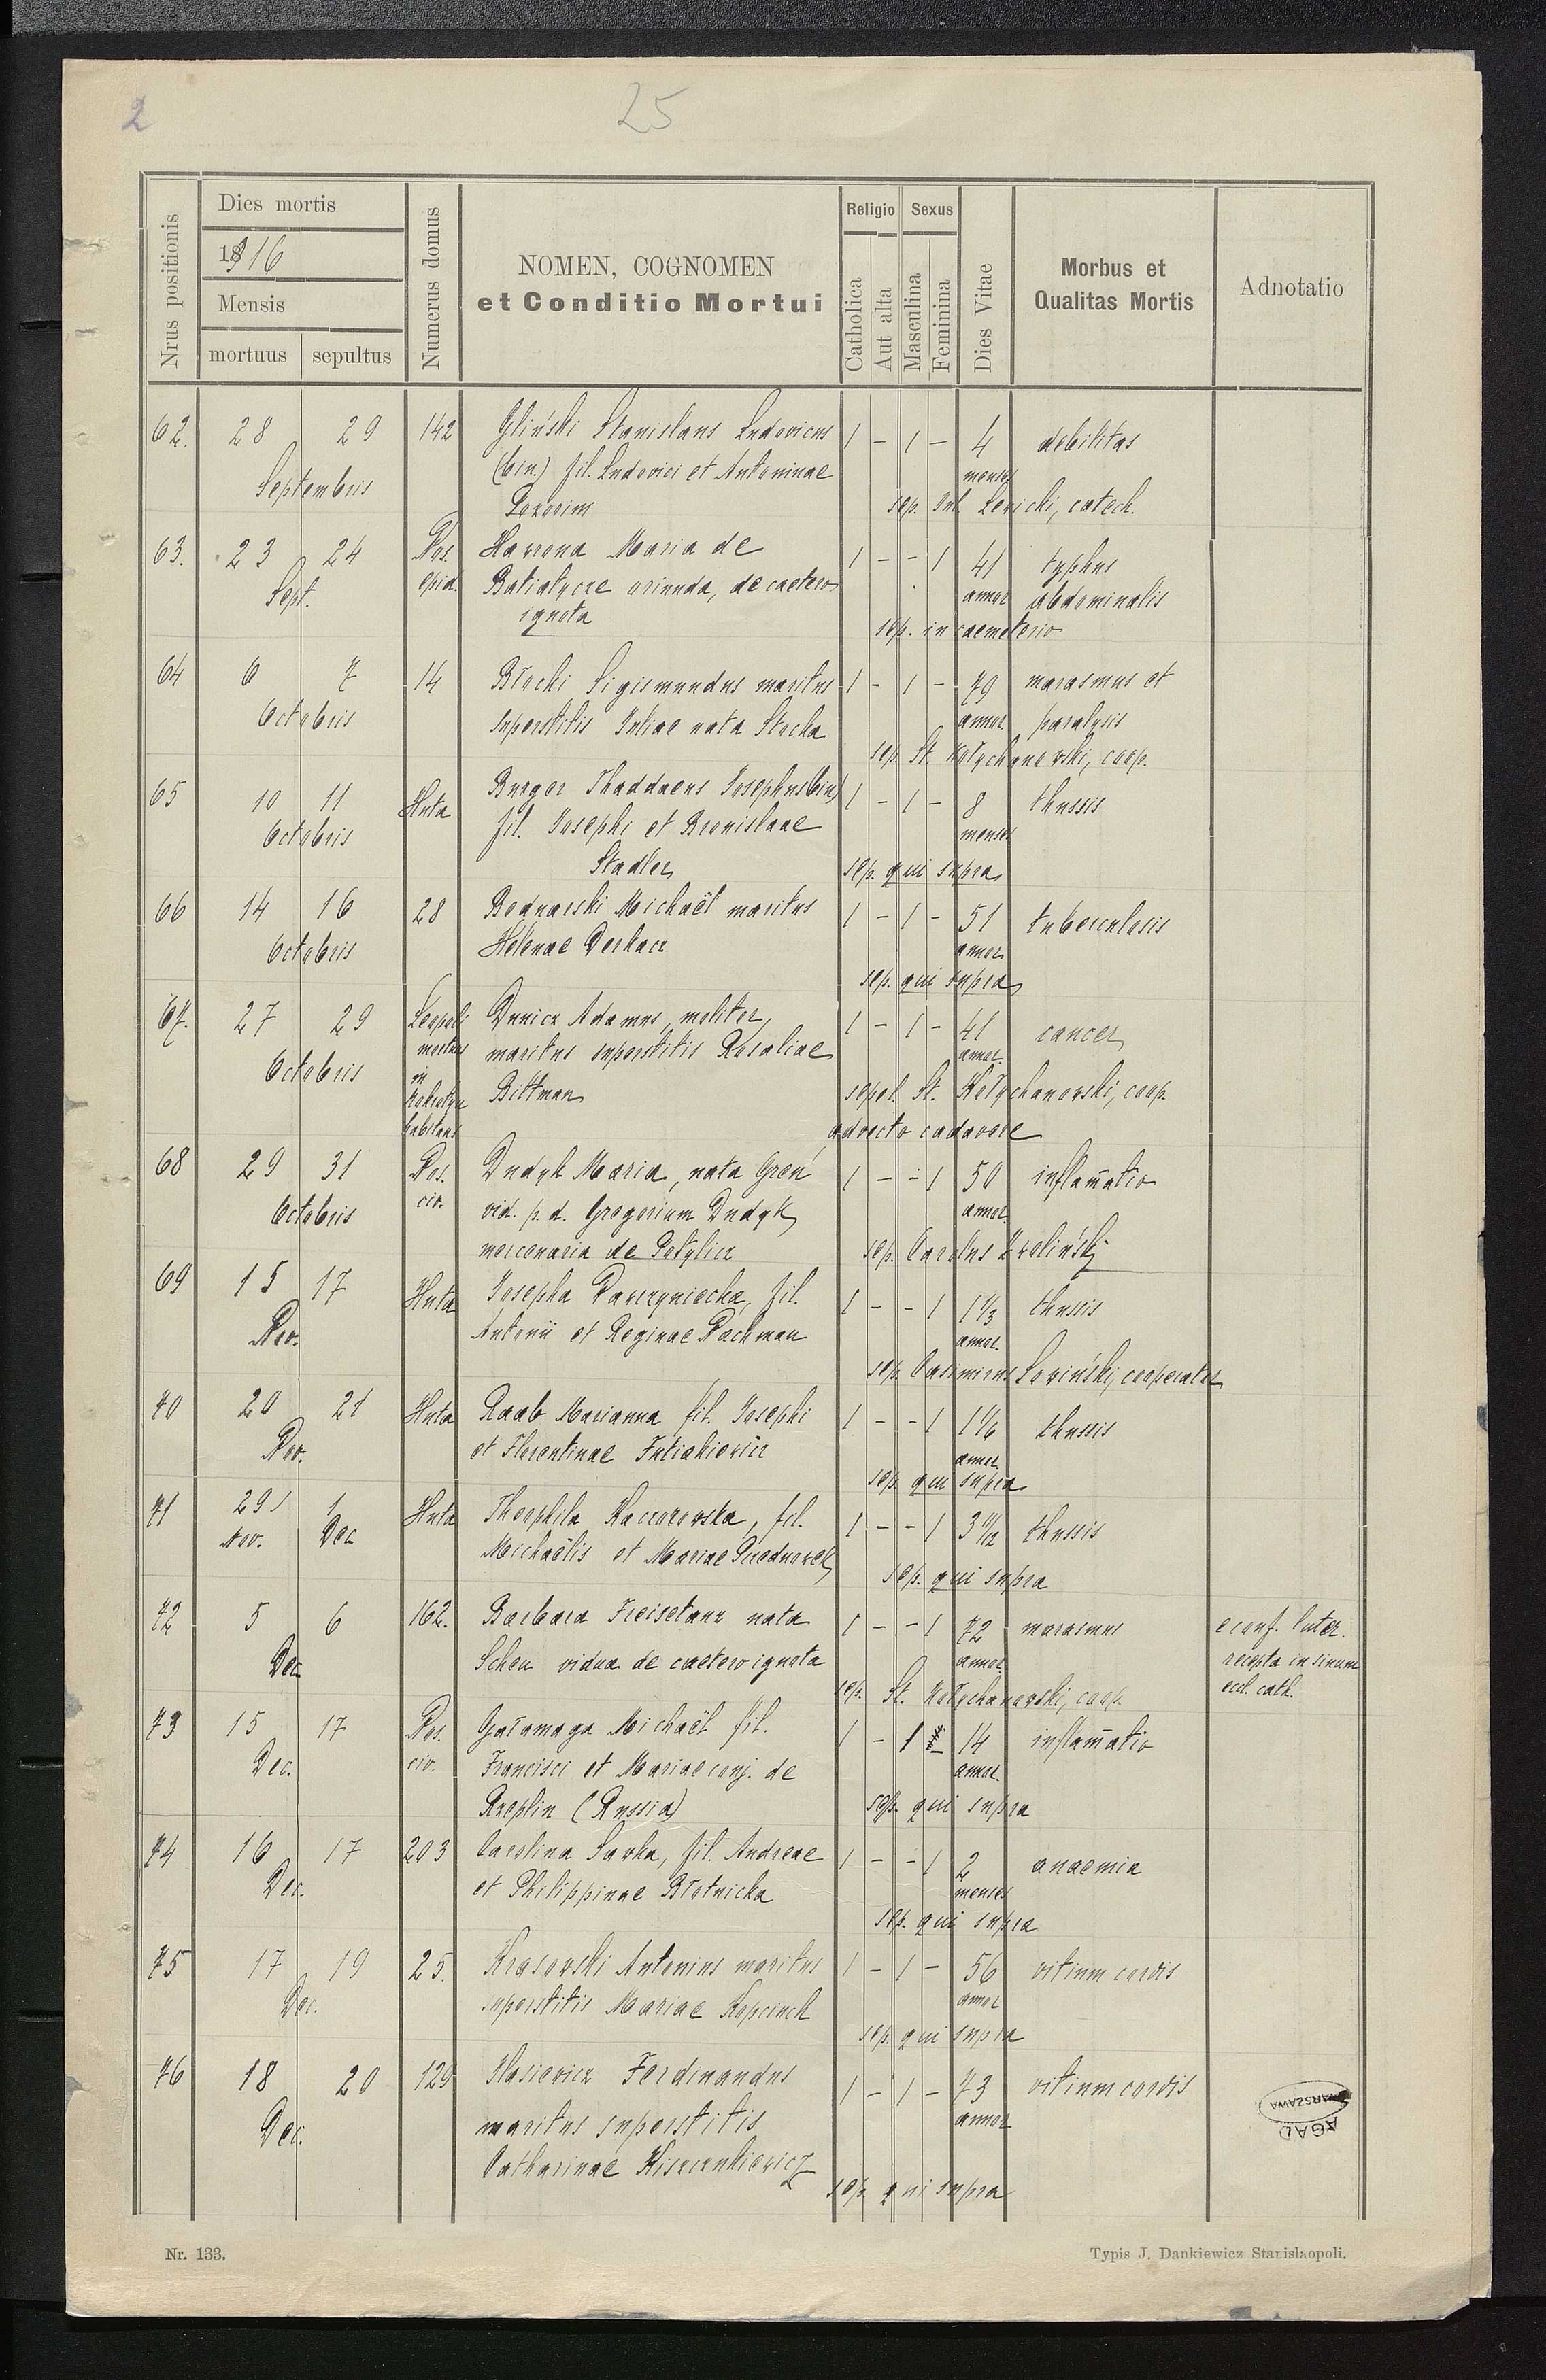 2
25
Nrus positionis
Dies mortis
1916
Mensis
mortuus sepultus
Numerus domus
NOMEN, COGNOMEN
et Conditio Mortui
Religio Sexus
Catholica
Aut alta
Masculina
Feminina
Dies Vitae
Morbus et
Qualitas Mortis
Adnotatio
62. 28 29 142 Gliński Stanislaus Ludovicus 1 - 1 - 4 debilitas
Septembris (bin.) fil. Ludovici et Antoninae menses
sep. Lewicki, catech.
63. 23 24 Nos. Hawrona Maria de 1 - - 1 41 typhus
Sept. epid. Batiatycze oriunda, de caetero annor. abdominalis
ignota sep. in caemeterio
64 6 7 14 Błocki Sigismundus maritus 1 - 1 - 79 marasmus et
Octobris superstitis Juliae nata Stocka annor. paralysis
sep. St. Kołychanowski, coop.
65 10 11 Huta Burger Thaddaeus Josephus (bin) 1 - 1 - 8 thussis
Octobris fil. Josephi et Bronislaae menses
Stadler sep. qui supra
66 14 16 28 Bednarski Michaël maritus 1 - 1 - 51 tuberculosis
Octobris Helenae Derkacz annor.
sep. qui supra
67. 27 29 Leopoli Dunicz Adamus, moliter, 1 - 1 - 41 cancer
Octobris mortuus maritus superstitis Rosaliae annor.
in Bittman sepel. St. Kołychanowski, coop.
habitans advecto cadavere
68 29 31 Nos. Dudyk Maria, nata Greń 1 - - 1 50 inflam̄atio
Octobris civ. vid. p. d. Gregorium Dudyk, annor.
mercenaria de Potylicz sep. Carolus
69 15 17 Huta Josepha Dawczyniecka, fil. 1 - - 1 1 1/3 thussis
Nov. Antonii et Reginae Pachman annor.
sep. Casimirus Lewiński, cooperator
70 20 21 Huta Raab Marianna fil. Josephi 1 - - 1 1 1/6 thussis
Nov. et Florentinae Futiakiewicz annor.
sep. qui supra
71 29 1 Huta Theophila Kaczorowska, fil. 1 - - 1 3 11/12 thussis
Nov. Dec. Michaëlis et Mariae
sep. qui supra
72 5 6 162. Barbara Freisetanz nata 1 - - 1 72 marasmus e conf. luter.
Dec. Scheu vidua de caetero ignota annor. recepta in sinum
sep. St. Kołychanowski, coop. eccl. cath.
73 15 17 Nos. Gałamaga Michaël fil. 1 - 1 - 14 inflam̄atio
Dec. civ. Francisci et Mariae conj. de annor.
Rzeplin (Russia) sep. qui supra
74 16 17 203 Carolina Sawka, fil. Andreae 1 - - 1 2 anaemia
Dec. et Philippinae Błotnicka menses
sep. qui supra
75 17 19 25. Krasowski Antonius maritus 1 - 1 - 56 vitium cordis
Dec. superstitis Mariae Kopciuch annor
sep. qui supra
76 18 20 129 Ilasiewicz Ferdinandus 1 - 1 - 73 vitium cordis
Dec. maritus superstitis annor
Catharinae Kiszczukiewicz
sep. qui supra
AGAD
WARSZAWA
Nr. 133.
Typis J. Dankiewicz Stanislaopoli.